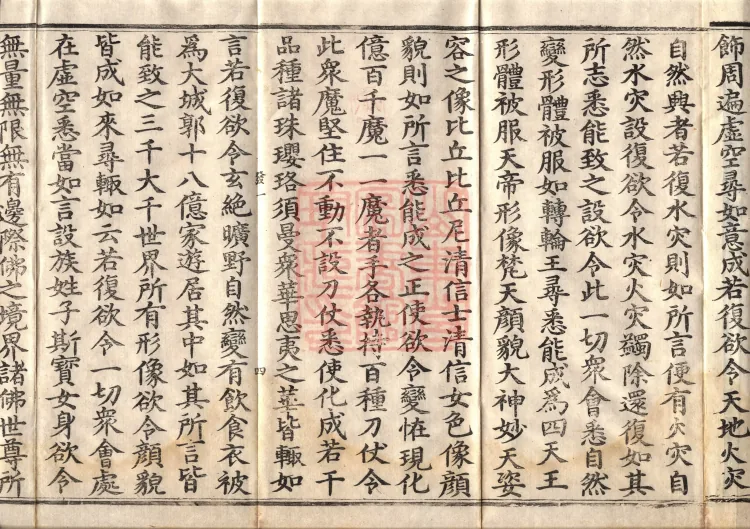 飾周遍虛空尋如意成若復欲令天地火灾
自然興者若復水灾則如所言便有灾灾自
然水灾設復欲令水灾火灾蠲除還復如其
所志悉能致之設欲令此一切衆會悉自然
變形體被服如轉輪王尋悉能成為四天王
形體被服天帝形像梵天顏貌大神妙天姿
容之像比丘比丘尼清信士清信女色像顏
貌則如所言悉能成之正使欲令變恠現化
億百千魔一一魔者手各執持百種刀仗令
此衆魔堅住不動不設刀仗悉使化成若干
品種諸珠瓔珞須曼衆華思夷之華皆輙如
發一 四
言若復欲令玄絶曠野自然變有飲食衣被
為大城郭十八億家遊居其中如其所言皆
能致之三千大千世界所有形像欲令顏貌
皆成如來尋輙如云若復欲令一切衆會處
在虛空悉當如言設族姓子斯寶女身欲令
無量無限無有邊際佛之境界諸佛世尊所